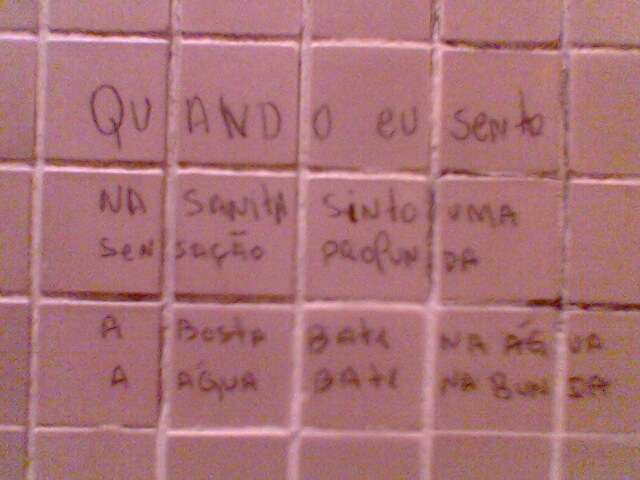 QUANDO eu sento
NA SANITA SINTO UMA
SeNSAÇÃO PROFUNDA
A BOSTA BATE NA ÁGUA
A ÁGUA BATE NA BUNDA